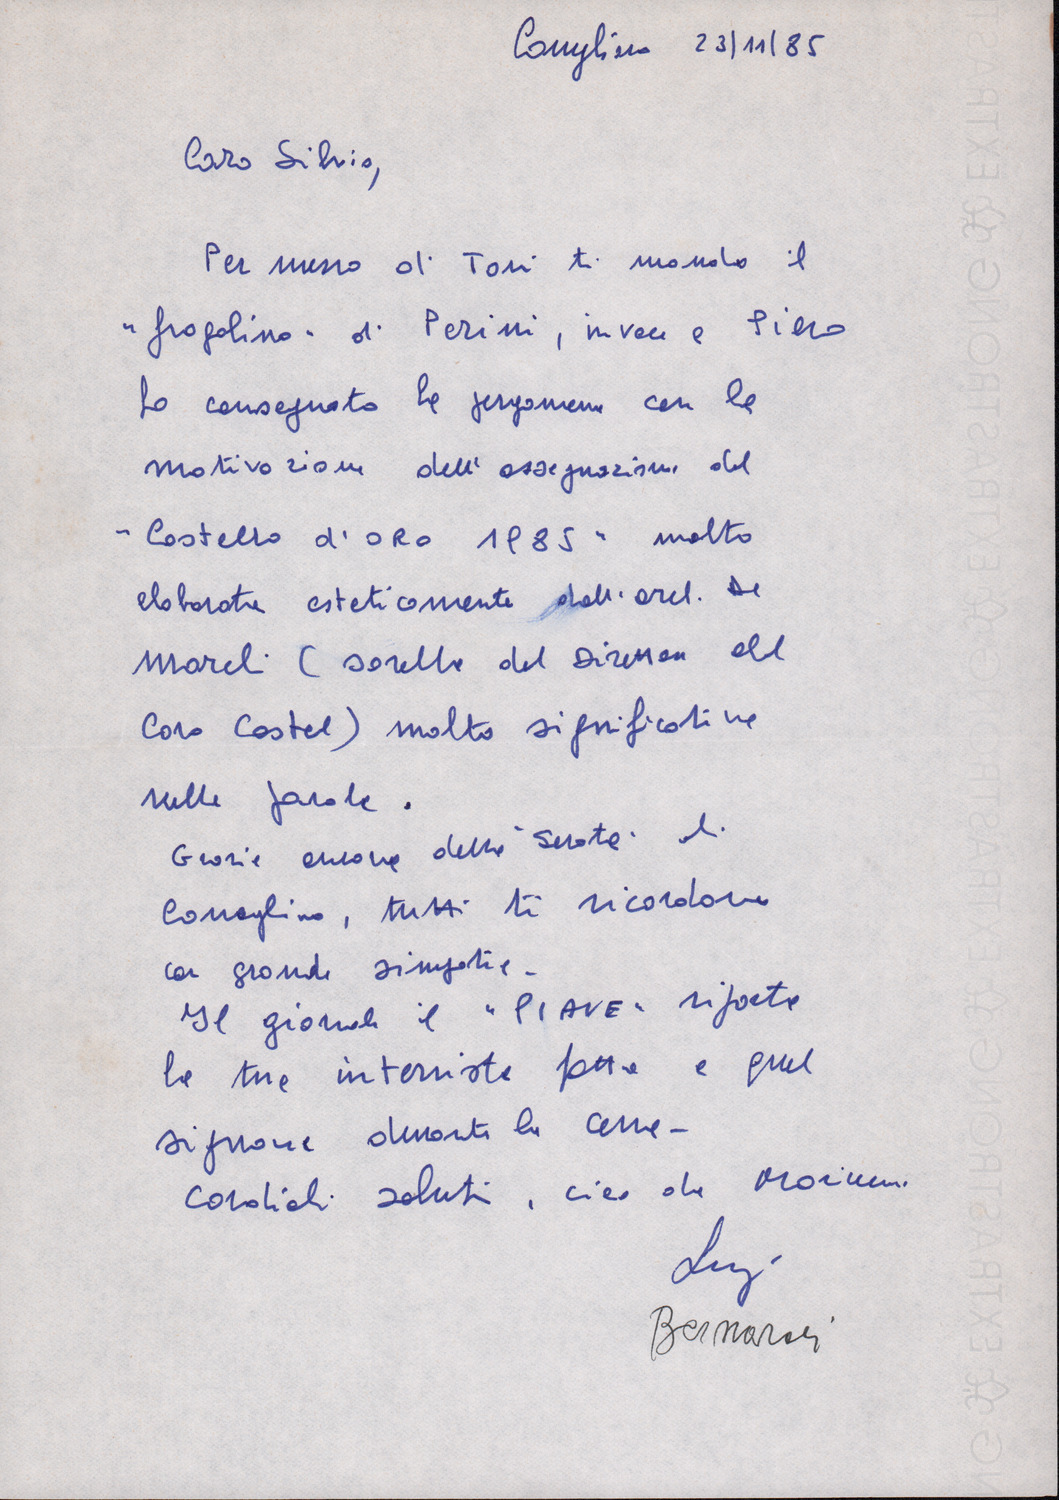 Conegliano 23/11/85
Caro Silvio,
Per mezzo di Toni ti mando il
"fragolino" di Perini, invece a Piero
ho consegnato la pergamena con la
motivazione dell'assegnazione del
"Castello d'ORO 1985" molto
elaborata esteticamente dall'arch. De
March (sorella del Direttore del
Coro Castel) molto significativa
nelle parole.
Grazie ancora della "serata" di
Conegliano, tutti ti ricordano
con grande simpatia -
Il giornale il "PIAVE" riporta
la tua intervista fatta a quel
signore durante la cena -
Cordiali saluti, ciao da
Luigi
Bernardi
EXTRA STRONG